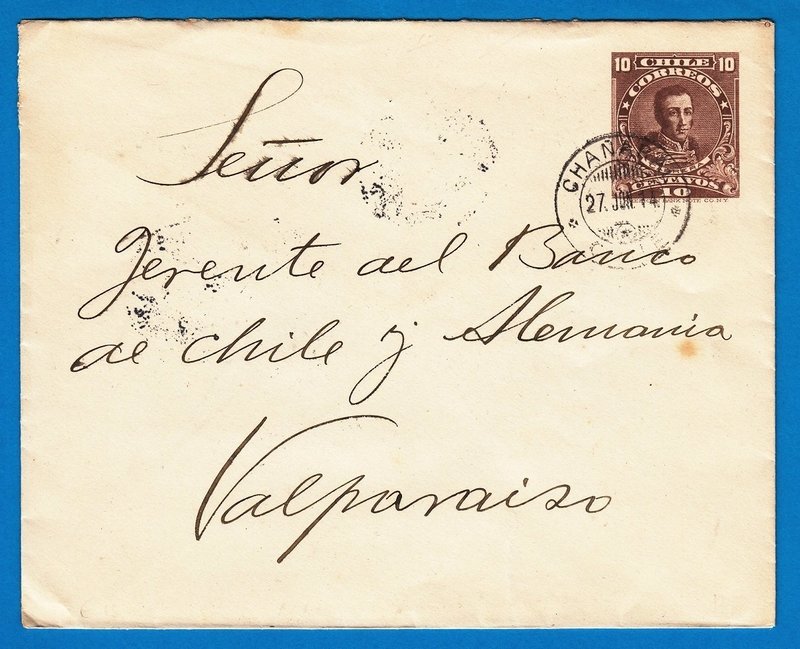 10 CHILE 10
CORREOS
CENTAVOS
10
NOTE CO. N.Y.
CHAÑA
27. JUN. 14
Señor
Gerente del Banco
de Chile y Alemania
Valparaiso